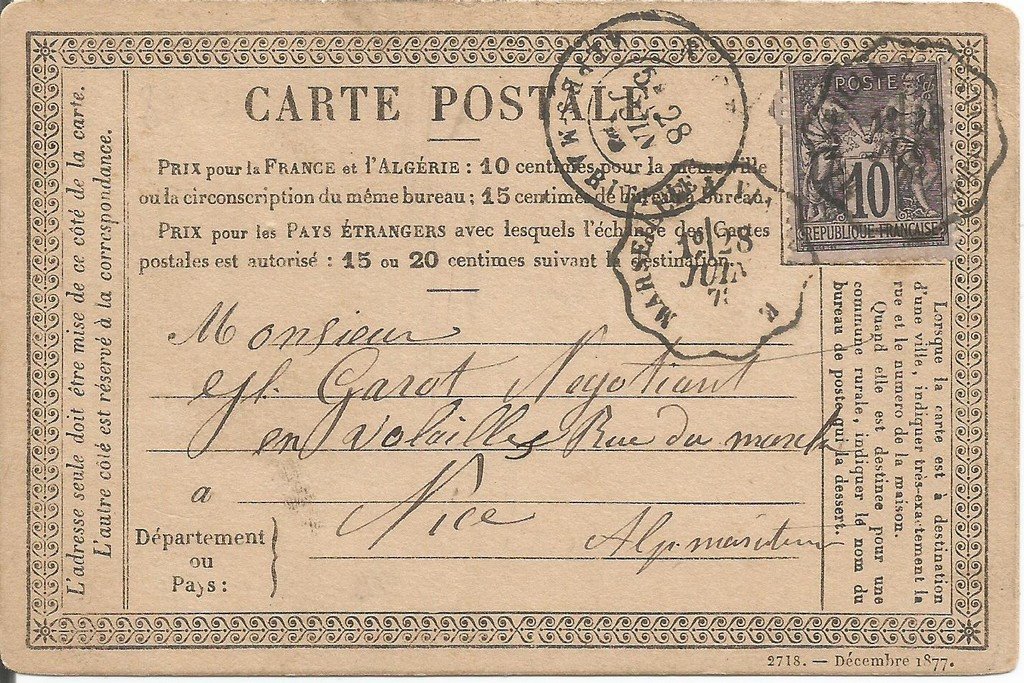 CARTE POSTALE
PRIX pour la FRANCE et l'ALGÉRIE : 10 centimes pour la même ville
ou la circonscription du même bureau ; 15 centimes de bureau à bureau.
PRIX pour les PAYS ÉTRANGERS avec lesquels l'échange des Cartes
postales est autorisé : 15 ou 20 centimes suivant la destination.
Monsieur
Garot Negotiant
en Volailles Rue du march
a Nice
Département
ou
Pays :
Alp. maritimes
L'adresse seule doit être mise de ce côté de la carte.
L'autre côté est réservé à la correspondance.
POSTE
10
REPUBLIQUE FRANÇAISE
5E
28
JUIN
MARSEILLE
1º/28
JUIN
Lorsque la carte est à destination
d'une ville, indiquer très-exactement la
rue et le numero de la maison.
Quand elle est destinée pour une
commune rurale, indiquer le nom du
bureau de poste qui la dessert.
2718. — Décembre 1877.